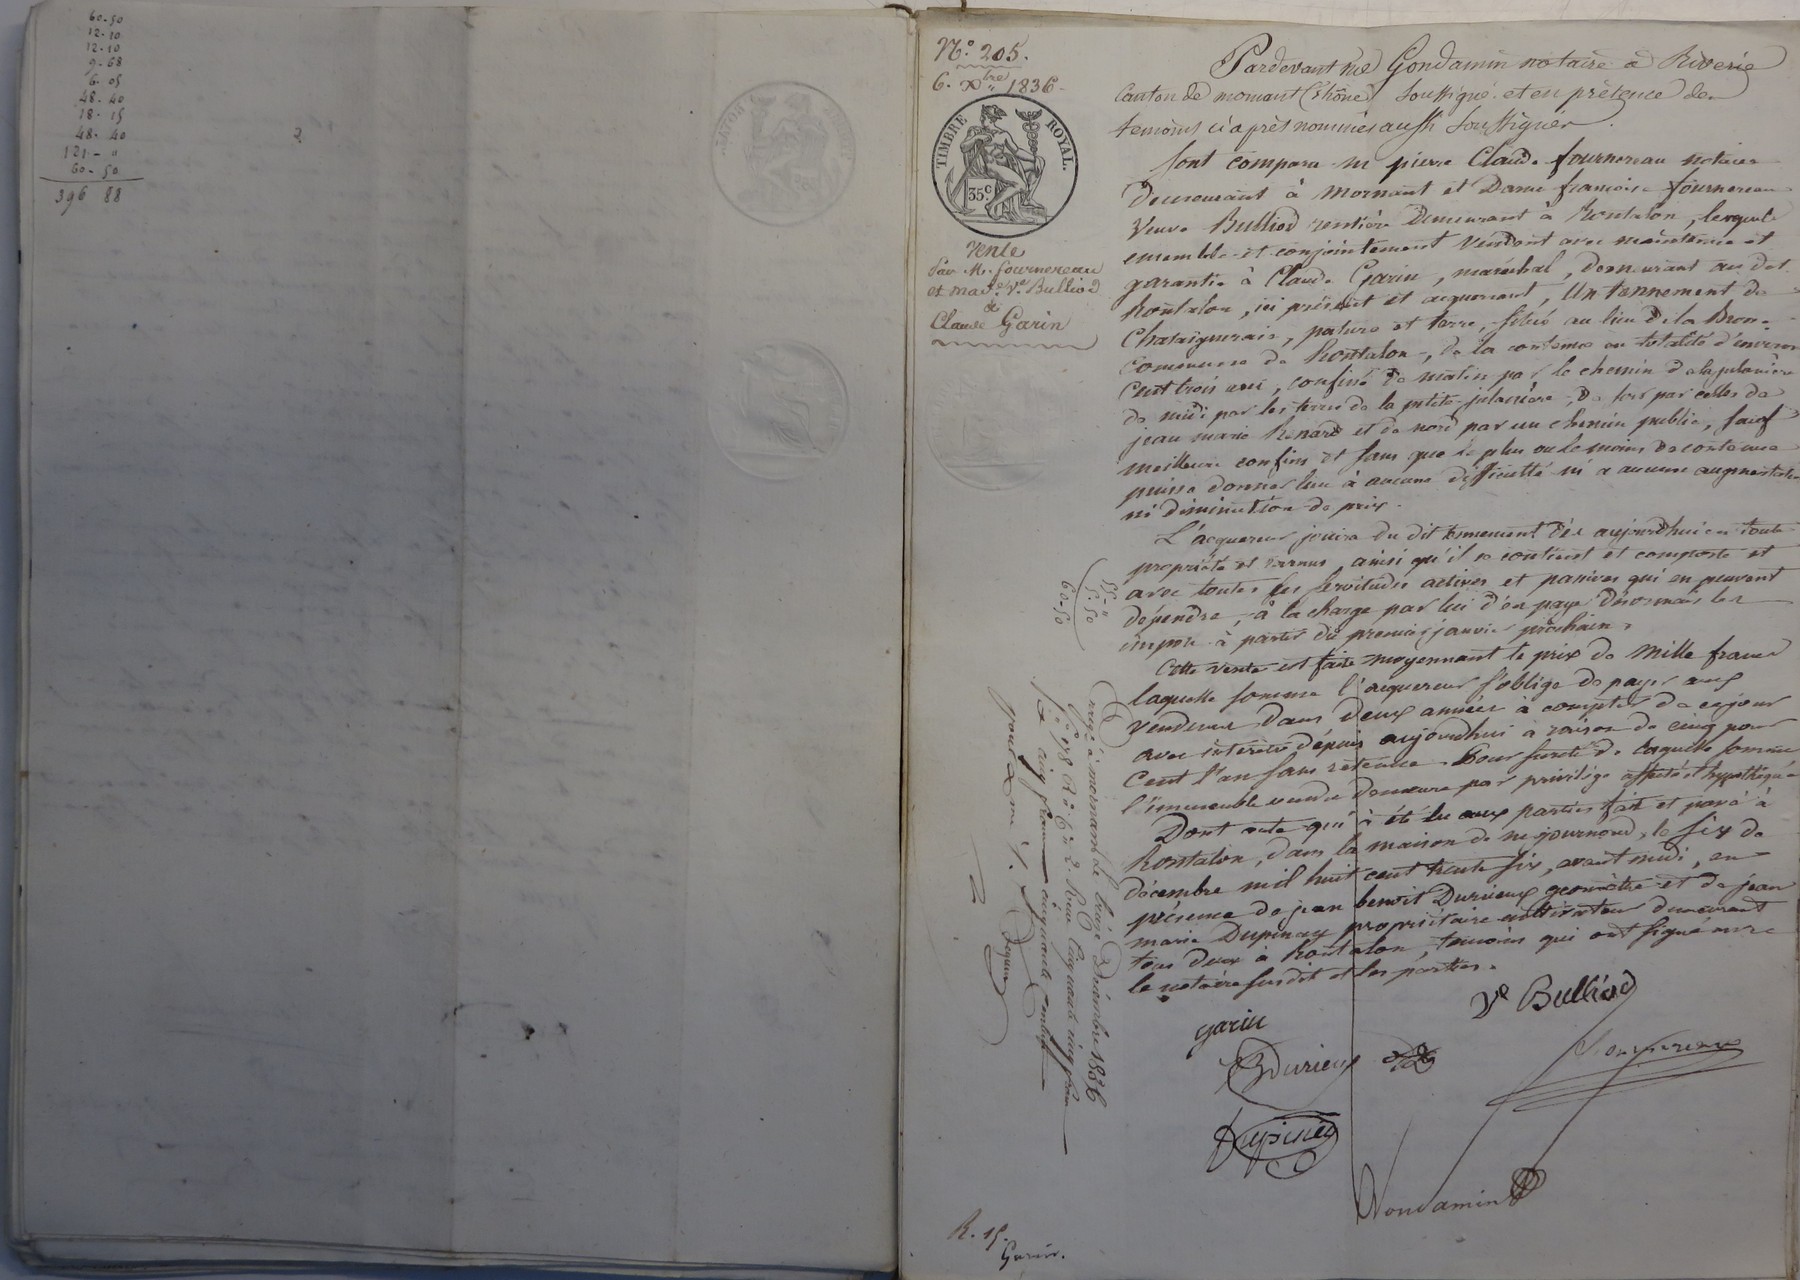 60-50
12-10
12-10
9-68
6-05
48-40
18-15
48-40
121-"
60-50
396 88
N.o 205.
6. Xbre 1836
TIMBRE ROYAL.
35.c
Vente
Par M. fournereau
et made. Ve. Bulliod
à
Claude Garin
55-"
5-50
60-50
à mornant le Décembre 1836
Reçu cinquante cinq francs
cinq francs cinquante centimes
R. 15.
Garin.
Pardevant Me Gondamin notaire à Riverie
Canton de mornant (Rhône) Soussigné et en présence des
temoins ci après nommés aussi Soussignés.
Sont comparu mr pierre Claude fournereau notaire
Demeurant à Mornant et Dame françoise fournereau
Veuve Bulliod rentière Demeurant à Rontalon, lesquels
ensemble et conjointement Vendent avec maintenue et
garantie à Claude Garin, maréchal, demeurant au dit
Rontalon, ici présent et acquerant, Un tennement de
Chataigneraie, pature et terre, situé au lieu de la
Commune de Rontalon, de la contenue en totalité d'environ
Cent trois ares, confiné de matin par le chemin de la planière
de midi par les terres de la petite planière, de soir par celles de
jean marie Renard et de nord par un chemin public, sauf
meilleurs confins et sans que le plus ou le moins de contenue
puisse donner lieu à aucune difficulté ni a aucune augmentation
ni diminution de prix.
L'acquereur jouira du dit tennement dès aujourdhui en toute
propriété et revenus, ainsi qu'il se contient et comporte et
avec toutes ses servitudes actives et passives qui en peuvent
dépendre, à la charge par lui d'en payer désormais les
impots à partir du premier janvier prochain.
Cette vente est faite moyennant le prix de Mille francs
laquelle somme l'acquereur s'oblige de payer aux
Vendeurs dans deux années à compter de ce jour
avec intérêts depuis aujourdhui à raison de cinq pour
Cent l'an sans retenue. Pour sureté de laquelle somme
l'immeuble vendu demeure par privilège affecté et hypothéqué
Dont acte qui a été lu aux parties fait et passé à
Rontalon, dans la maison de me journoud, le six de
décembre mil huit cent trente six, avant midi, en
présence de jean benoit Durieux géomètre et de jean
marie Dupinay propriétaire cultivateur demeurant
tous deux à Rontalon, temoins qui ont signé avec
le notaire susdit et les parties.
Ve Bulliod
garin
Durieux
fournereau
Dupinay
Gondamin